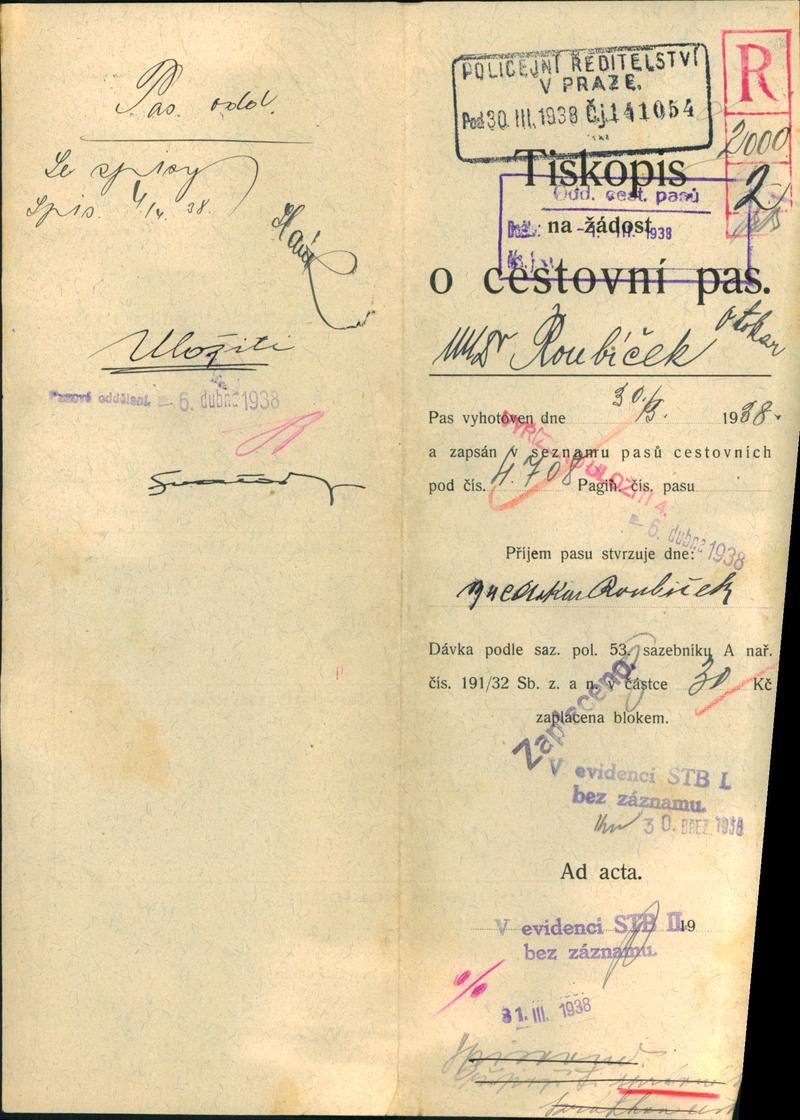 Pas. odd.
Se spisy
Spis. 4/IV. 38.
Uložiti
Pasové oddělení. – 6. dubna 1938
POLICEJNÍ ŘEDITELSTVÍ
V PRAZE.
Pod 30. III. 1938 Čj. 141054
R
2000
2
Tiskopis
Odd. cest. pasů
na žádost
1938
o cestovní pas.
MUDr Roubíček Otokar
Pas vyhotoven dne 30/3. 1938.
a zapsán v seznamu pasů cestovních
pod čís. 4.708 Pagin. čís. pasu
– 6. dubna 1938
Příjem pasu stvrzuje dne:
Roubíček
Dávka podle saz. pol. 53. sazebníku A nař.
čís. 191/32 Sb. z. a n. v částce 30 Kč
zaplacena blokem.
Zaplaceno.
V evidenci STB I.
bez záznamu.
30. BŘEZ. 1938
Ad acta.
V evidenci STB II. 19
bez záznamu.
31. III. 1938